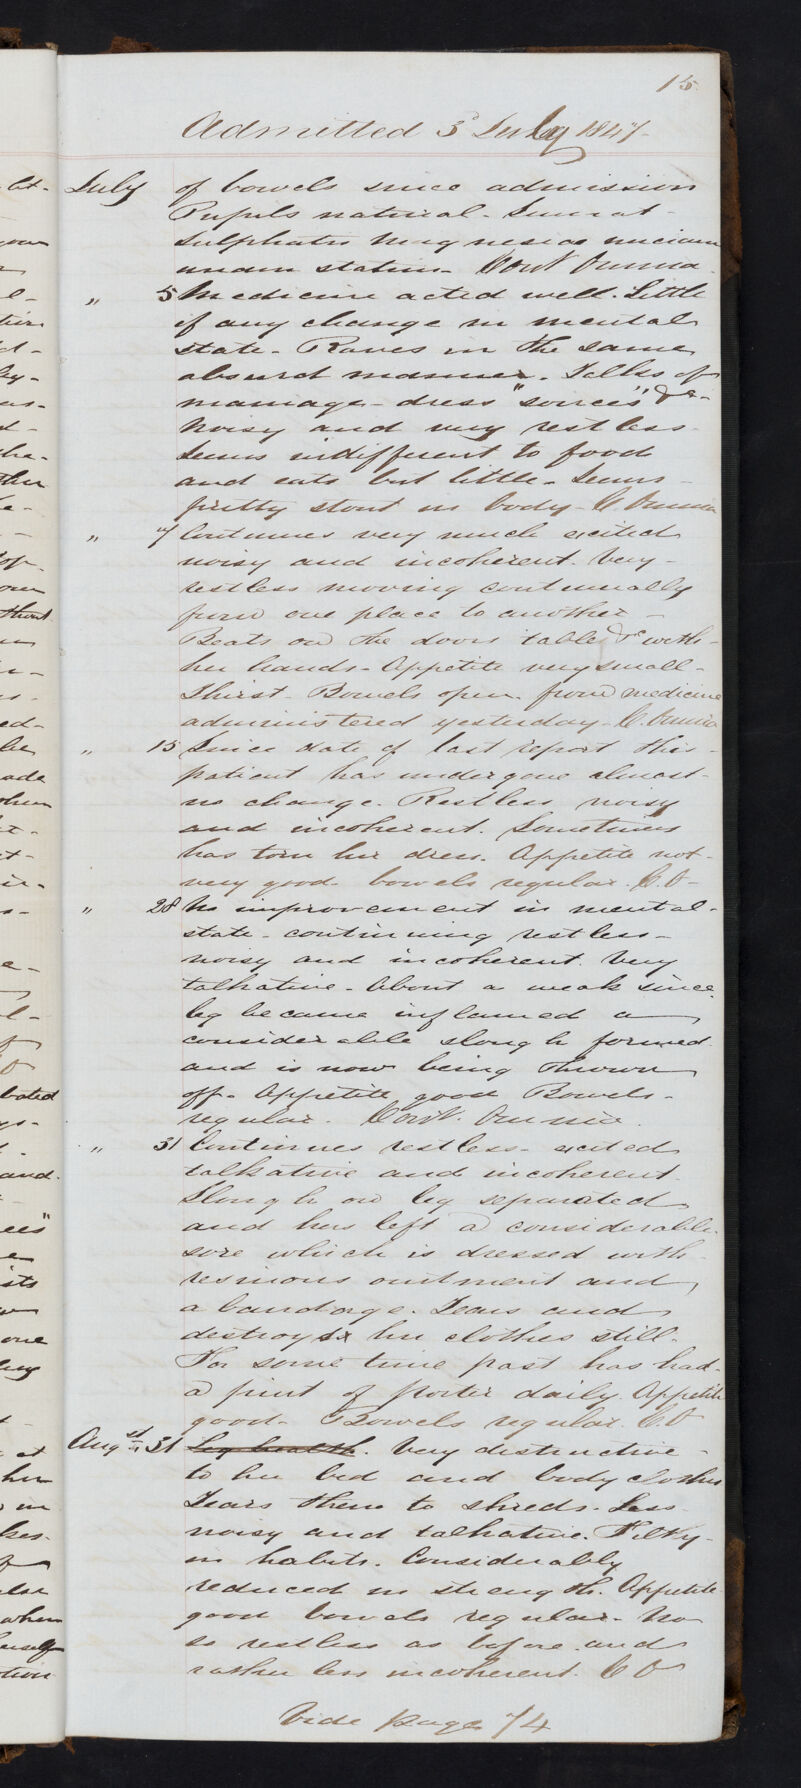 15
Admitted 3d July 1847
July of bowels since admission
Pupils natural. Sumat
Sulphatis Magnesiae unciam
unam statim. Cont omnia.
" 5 Medicine acted well. Little
if any change in mental
state. Raves in the same
absurd manner. Talks of
marriage - dress "soirees" &c.
Noisy and very restless.
Seems indifferent to food
and eats but little. Seems
pretty stout in body. C. Omnia
" 7 Continues very much excited
noisy and incoherent. Very
restless moving continually
from one place to another.
Beats on the doors tables &c with
her hands. Appetite very small.
Thirst. Bowels open from medicine
administered yesterday. C. Omnia
" 15 Since date of last report this
patient has undergone almost
no change. Restless noisy
and incoherent. Sometimes
has torn her dress. Appetite not
very good. bowels regular. C.O
" 28 No improvement in mental
state. continuing restless
noisy and incoherent. Very
talkative. About a week since
leg became inflamed a
considerable slough formed
and is now being thrown
off. Appetite good Bowels
regular. Cont. Omnia.
" 31 Continues restless. excited
talkative and incoherent.
Slough on leg separated
and has left a considerable
sore which is dressed with
resinous ointment and
a bandage. Tears and
destroys her clothes still.
For some time past has had
a pint of porter daily. Appetite
good. Bowels regular. C.O
Augst 31 Leg health. Very destructive
to her bed and body clothes
Tears them to shreds. Less
noisy and talkative. Filthy
in habits. Considerably
reduced in strength. Appetite
good bowels regular. No
so restless as before and
rather less incoherent. C O
Vide page 74